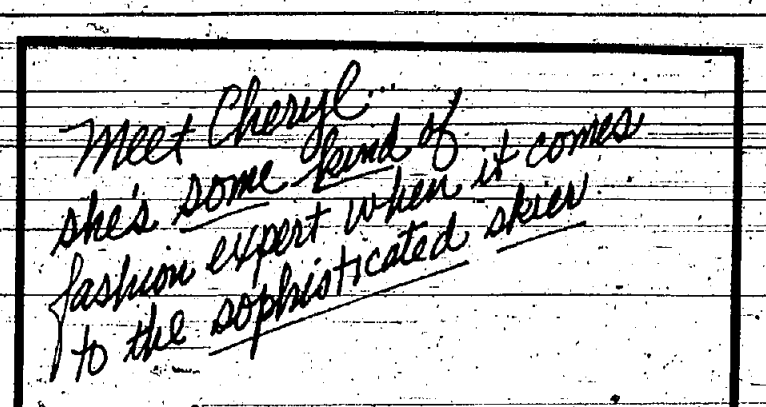 Meet Cheryl...
she's some kind of
fashion expert when it comes
to the sophisticated skier